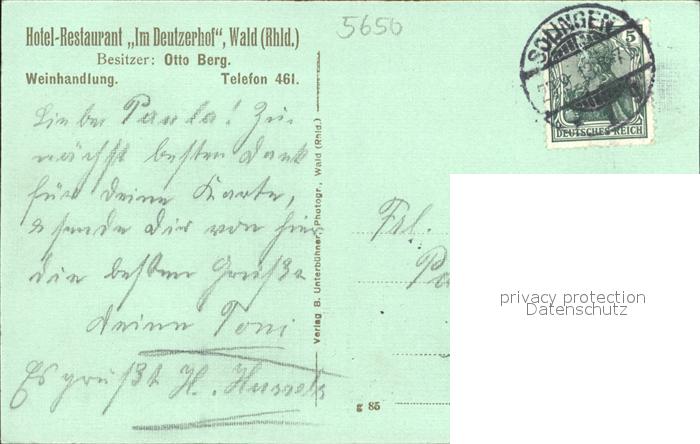 Hotel-Restaurant „Im Deutzerhof“, Wald (Rhld.)
Besitzer: Otto Berg.
Weinhandlung. Telefon 461.
5650
SOLINGEN
5
DEUTSCHES REICH
Liebe Paula! Zu-
nächst besten Dank
für deine Karte,
sende Dir von hier
die besten Grüße
deine Toni
Es grüßt H.
Verlag B. Unterbühner, Photogr., Wald (Rhld.)
Frl.
Pa
g 85
privacy protection
Datenschutz